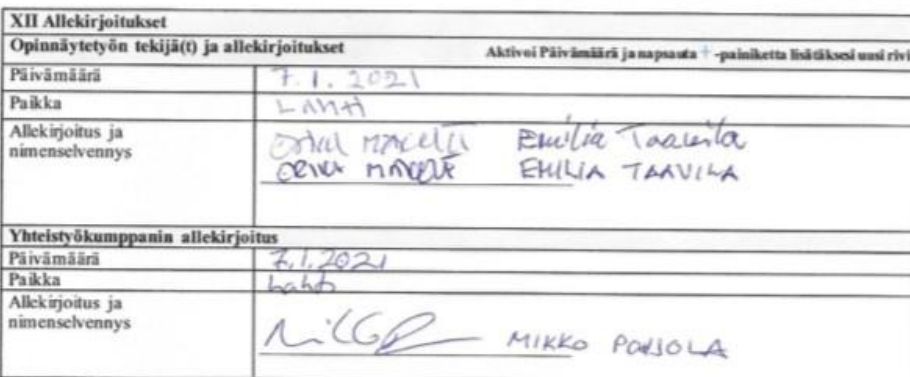 XII Allekirjoitukset
Opinnäytetyön tekijä(t) ja allekirjoitukset Aktivoi Päivämäärä ja napsauta + -painiketta lisätäksesi uusi rivi
Päivämäärä 7.1.2021
Paikka LAHTI
Allekirjoitus ja Emilia Taavila
nimenselvennys EMILIA TAAVILA
Yhteistyökumppanin allekirjoitus
Päivämäärä 7.1.2021
Paikka Lahti
Allekirjoitus ja
nimenselvennys MIKKO POHJOLA